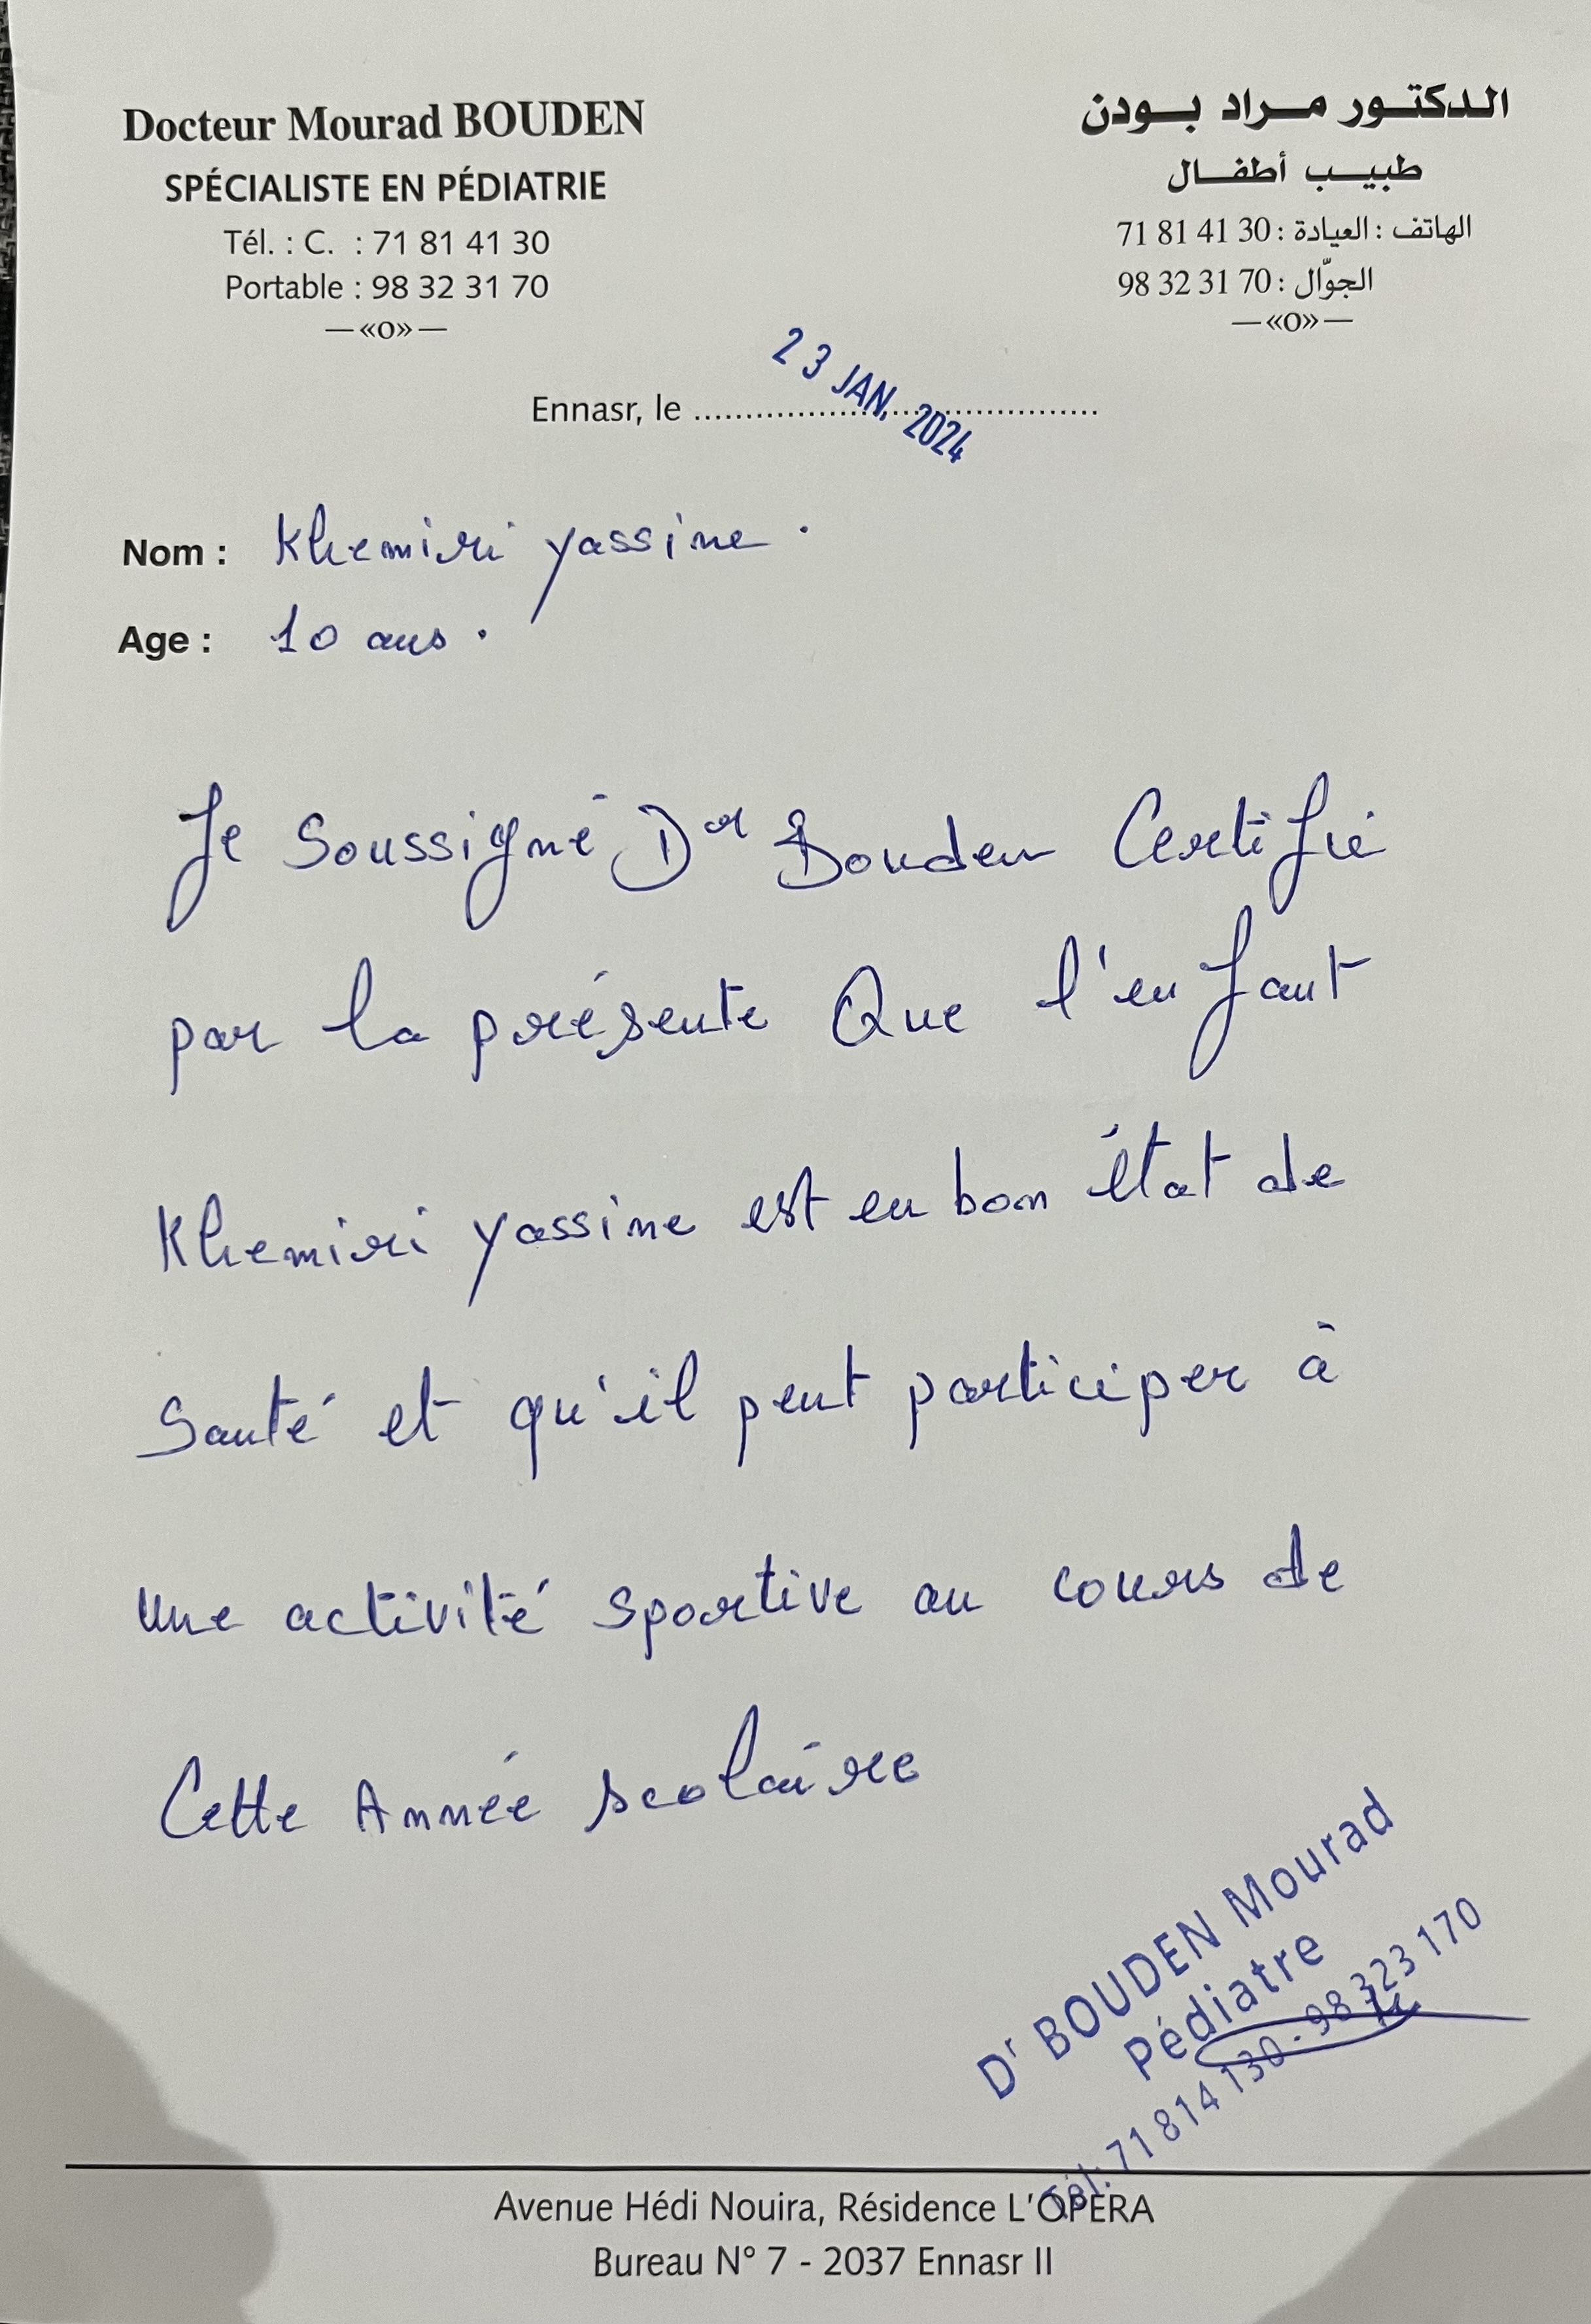 Docteur Mourad BOUDEN
SPÉCIALISTE EN PÉDIATRIE
Tél. : C. : 71 81 41 30
Portable : 98 32 31 70
—«O»—
الدكتور مراد بودن
طبيب أطفال
الهاتف : العيادة : 30 41 81 71
الجوّال : 70 31 32 98
—«O»—
Ennasr, le 23 JAN. 2024
Nom : Khemiri yassine.
Age : 10 ans.
Je Soussigné Dr Bouden Certifié
par la présente Que l'enfant
Khemiri yassine est en bon état de
Santé et qu'il peut participer à
une activité sportive au cours de
Cette Année scolaire
Dr BOUDEN Mourad
Pédiatre
Tél: 71 814 130 - 98 323 170
Avenue Hédi Nouira, Résidence L'OPERA
Bureau N° 7 - 2037 Ennasr II